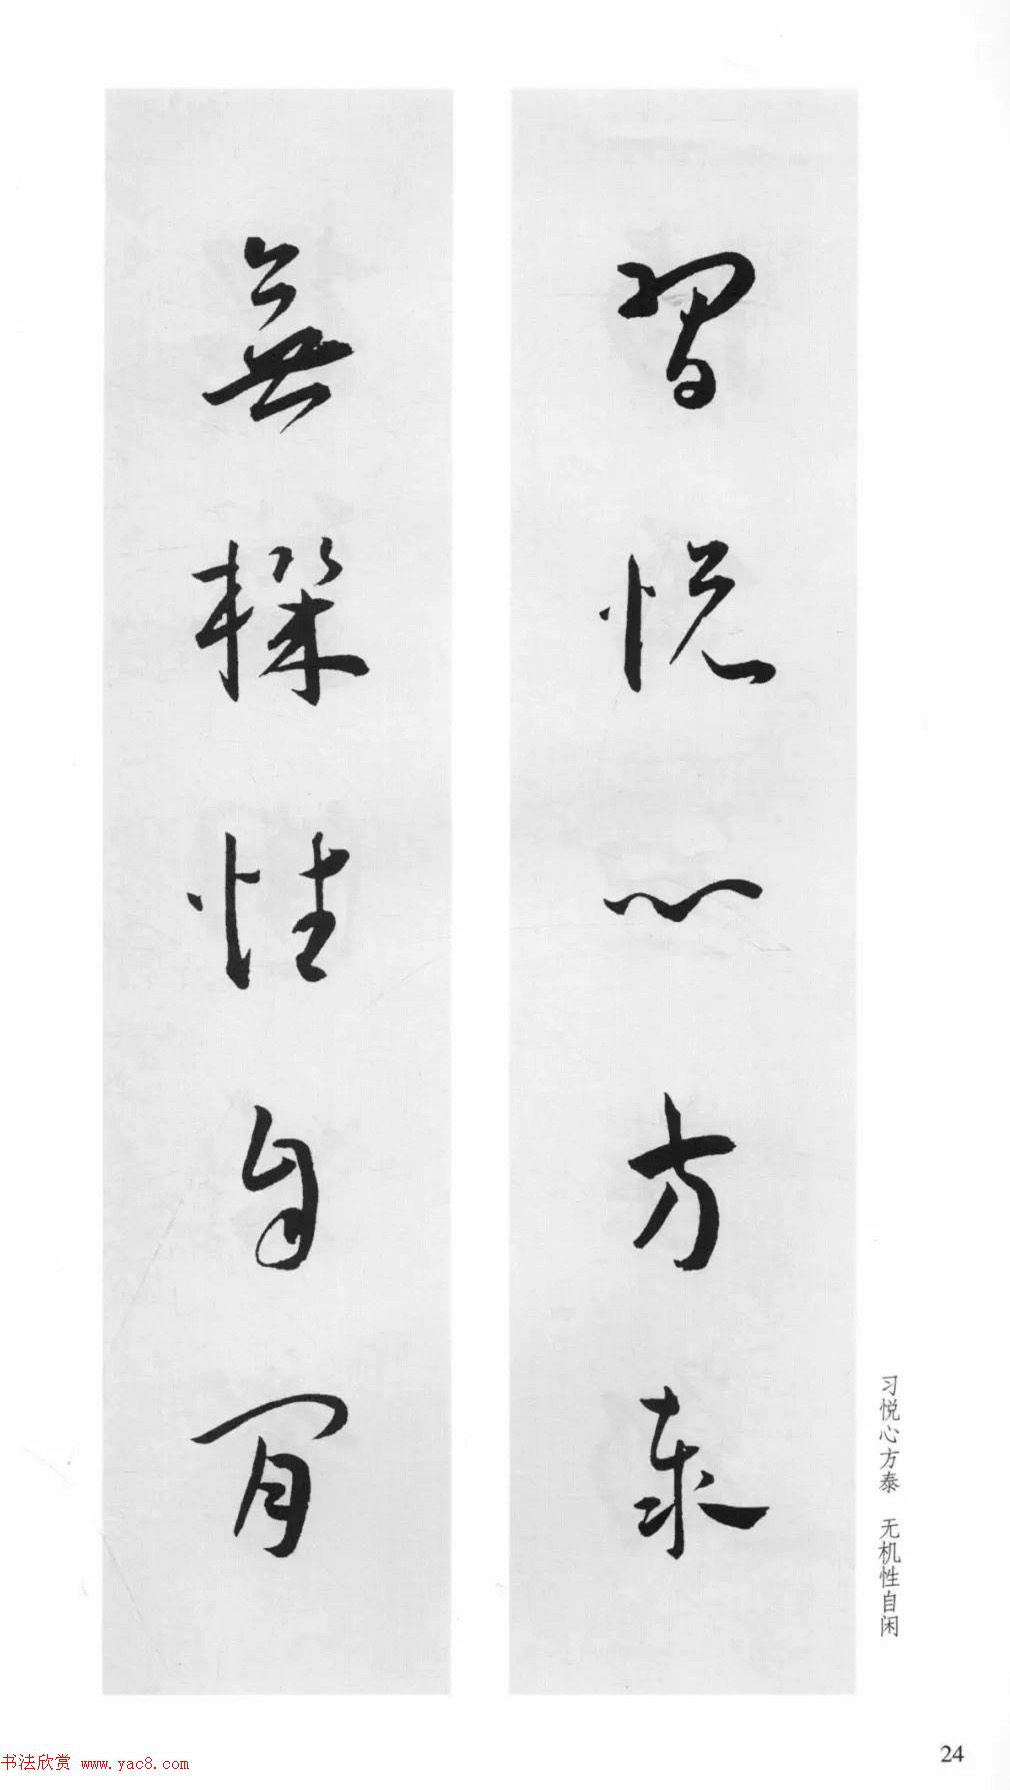 習悅心方泰
無機性自閒
习悦心方泰　无机性自闲
24
书法欣赏 www.yac8.com